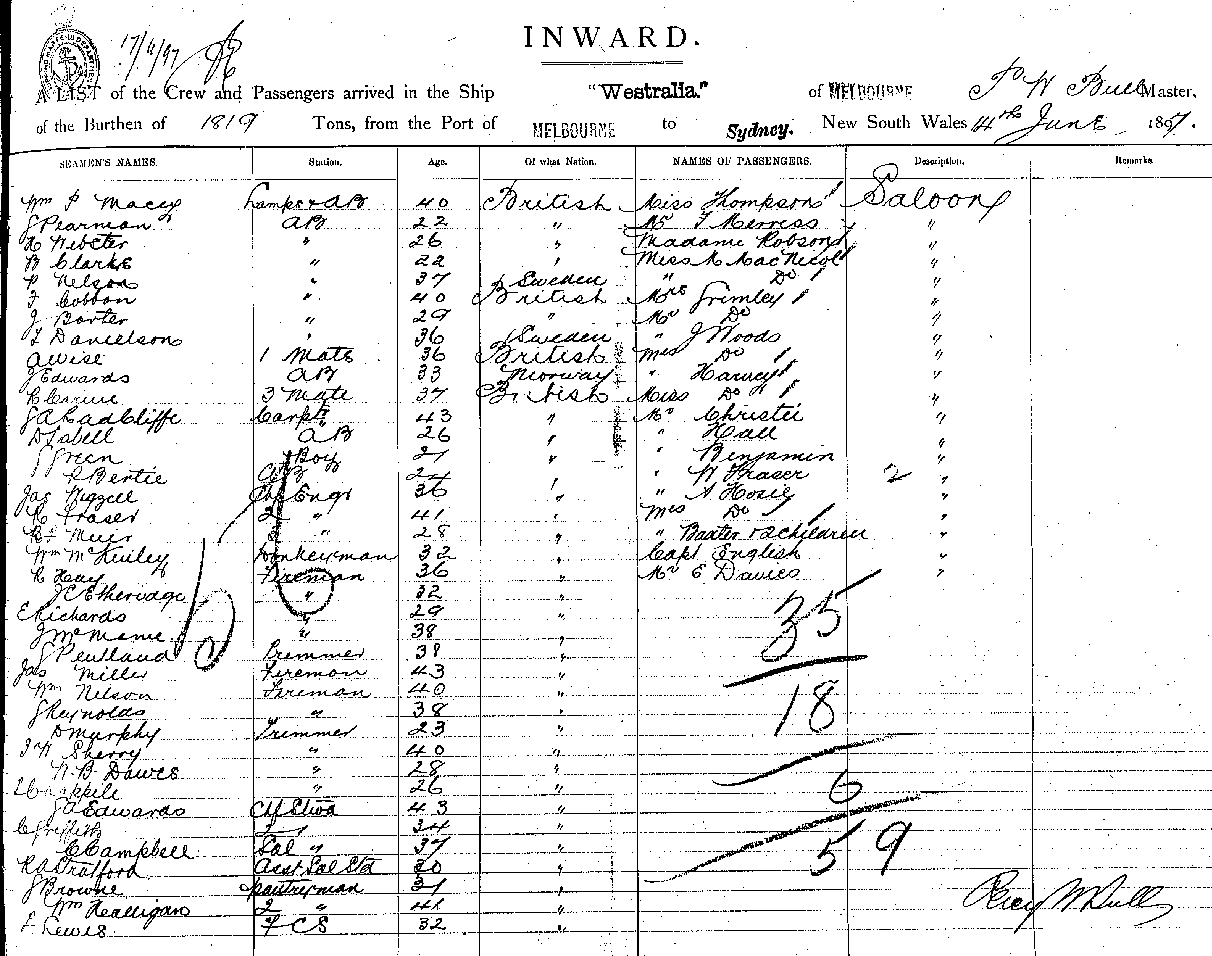 17/6/97
INWARD.
A LIST of the Crew and Passengers arrived in the Ship "Westralia." of MELBOURNE P W Bull Master,
of the Burthen of 1819 Tons, from the Port of MELBOURNE to Sydney. New South Wales 14th June 1897.
SEAMEN'S NAMES. Station. Age. Of what Nation. NAMES OF PASSENGERS. Description. Remarks
Wm P Macey Lamps & AB 40 British Miss Thompson Saloon
J Pearman AB 22 " Mr F Merriss "
Webster " 26 " Madame Robson "
B Clarke " 22 " Miss K MacNicol "
P Nelson " 37 Sweden " Do "
F Cobbon " 40 British Mrs Grimley "
J Barter " 29 " Mr Do "
F Danielson " 36 Sweden " J Woods "
A Wise 1 Mate 36 British Mrs Do "
J Edwards AB 33 Norway " Harvey "
3 Mate 37 British Miss Do "
J A Radcliffe Carptr 43 " Mr Christie "
D Isbell AB 26 " " Hall "
J Green Boy 21 " " Benjamin "
Bertie AB 24 " " W Fraser 2 "
Jas Niggell Engr 36 " " A Hosie "
R Fraser 2 " 41 " Mrs Do "
Muir 3 " 28 " " Baxter & 2 children "
Wm McKinley Donkeyman 32 " Capt English "
R Hay Fireman 36 " Mr E Davies "
J C Etheridge " 32 "
E Richards " 29 "
J McManie " 38 "
J Pentland Tremmer 38 "
Jas Miller Fireman 43 "
Wm Nelson Fireman 40 "
J Reynolds " 38 "
D Murphy Trimmer 23 "
J W Sherry " 40 "
W. B. Dawes " 28 "
" 26 "
J A Edwards Chf Stwd 43 "
C Griffith 2 " 34 "
C Campbell Sal " 37 "
R A Stratford Asst Sal Std 30 "
J Browne pantryman 31 "
Wm Healligan 2 " 41 "
F Lewis F C S 32 "
35
18
6
59
Percy W Bull